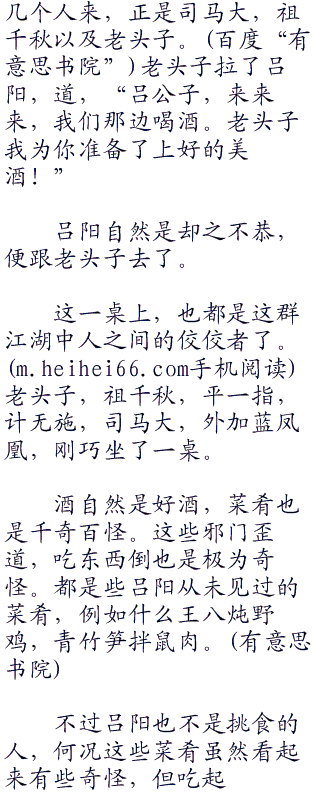 几个人来，正是司马大，祖
千秋以及老头子。(百度“有
意思书院”)老头子拉了吕
阳，道，“吕公子，来来
来，我们那边喝酒。老头子
我为你准备了上好的美
酒！”
吕阳自然是却之不恭，
便跟老头子去了。
这一桌上，也都是这群
江湖中人之间的佼佼者了。
(m.heihei66.com手机阅读)
老头子，祖千秋，平一指，
计无施，司马大，外加蓝凤
凰，刚巧坐了一桌。
酒自然是好酒，菜肴也
是千奇百怪。这些邪门歪
道，吃东西倒也是极为奇
怪。都是些吕阳从未见过的
菜肴，例如什么王八炖野
鸡，青竹笋拌鼠肉。(有意思
书院)
不过吕阳也不是挑食的
人，何况这些菜肴虽然看起
来有些奇怪，但吃起